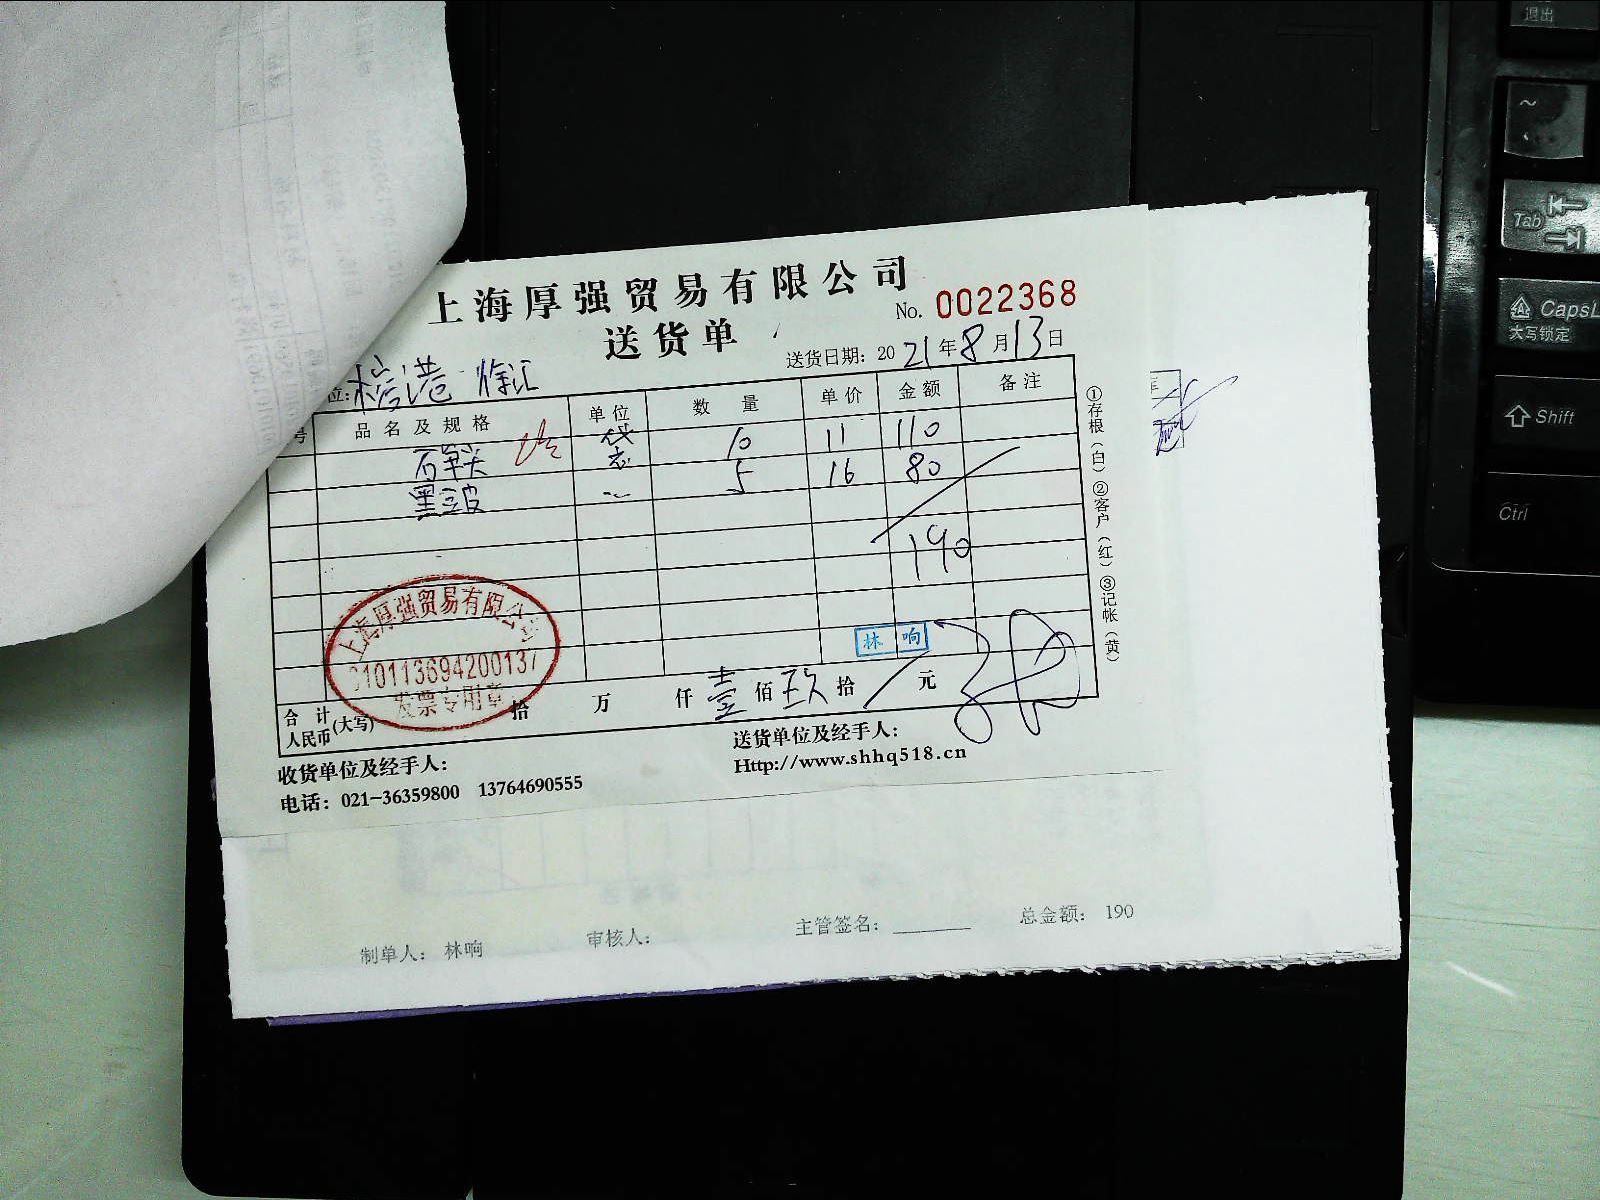 上海厚强贸易有限公司
No. 0022368
送货单
送货日期: 2021年8月13日
位: 港 徐汇
号 品名及规格 单位 数量 单价 金额 备注
袋 10 11 110
黑豆皮 5 16 80
190
上海厚强贸易有限公司
310113694200137
发票专用章
林响
合计人民币(大写) 拾 万 仟 壹 佰 玖 拾 元
收货单位及经手人:
送货单位及经手人:
电话: 021-36359800 13764690555
Http://www.shhq518.cn
①存根(白) ②客户(红) ③记帐(黄)
制单人: 林响 审核人: 主管签名: 总金额: 190
退出
~
Tab
CapsL
大写锁定
Shift
Ctrl